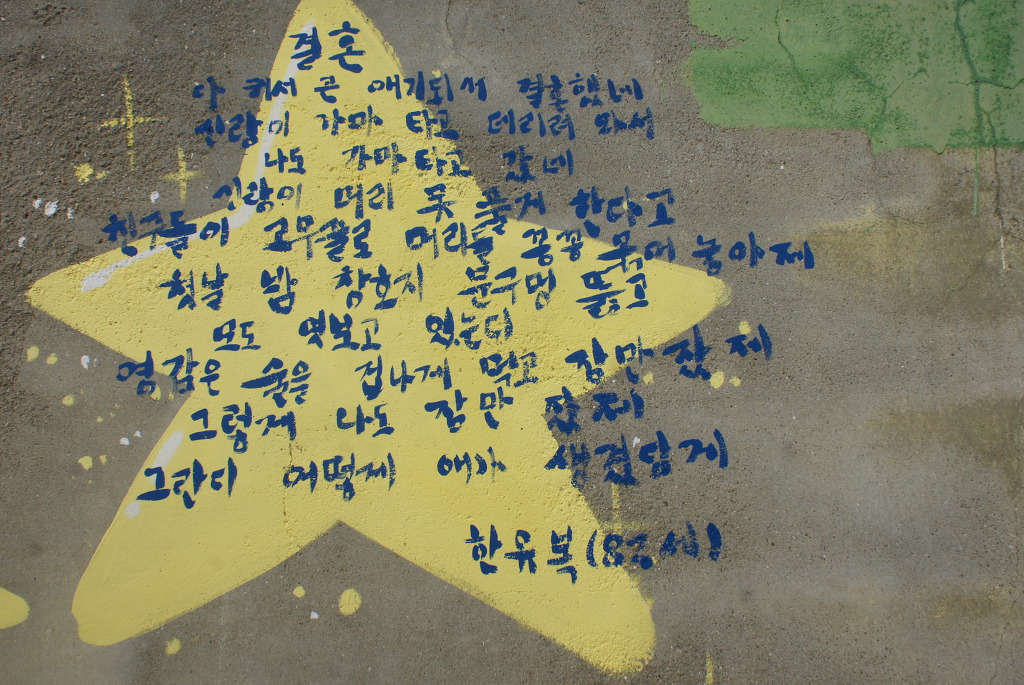 결혼
다 커서 큰 애기되서 결혼했네
신랑이 가마 타고 데리러 와서
나도 가마타고 갔네
신랑이 머리 못 풀게 한다고
친구들이 고무줄로 머리를 꽁꽁 묶어 놓아제
첫날 밤 창호지 문구멍 뚫고
모도 엿보고 있는디
영감은 술을 겁나게 먹고 잠만 잤제
그렇제 나도 잠만 잤제
그란디 어떻게 애가 생겼담게
한유복( 세)